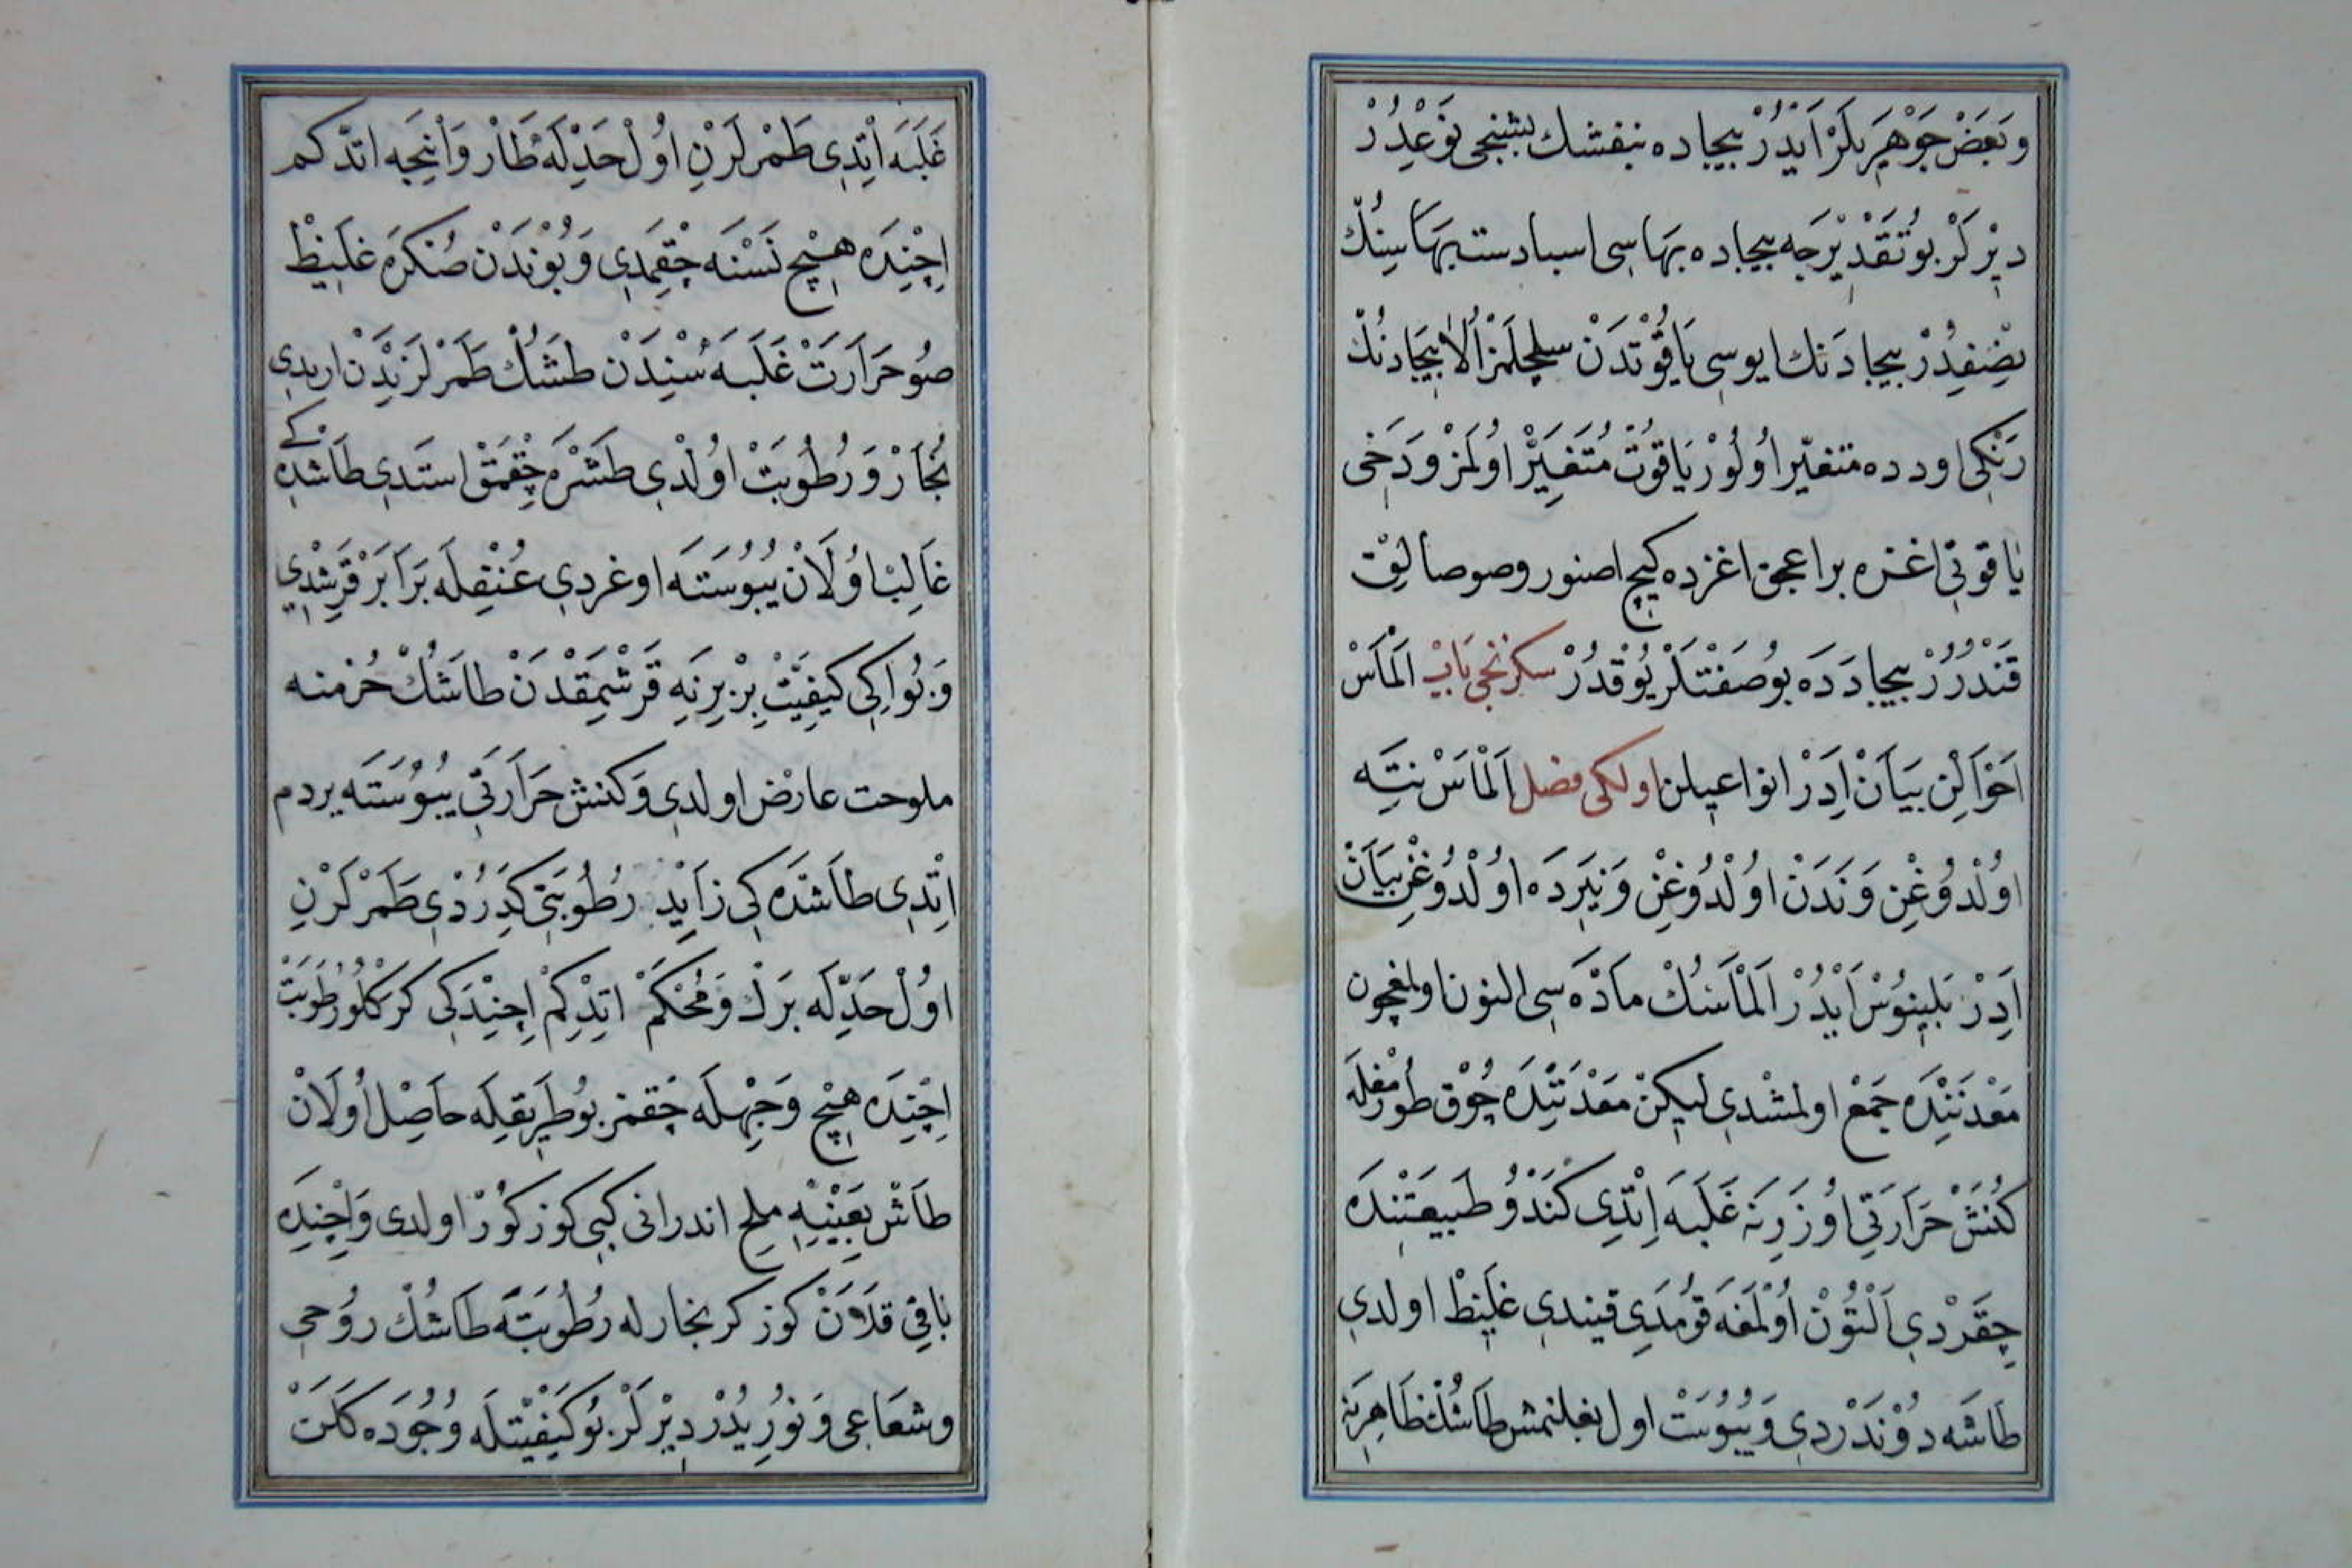 وَبَعَضْ جَوْهَرِيلَرْ اَيْدُرْ بيجاده بنفشك بشنجى نَوْعِدُرْ
دِيْرلَرْ بُو تَقْدِيْرْجَه بيجاده بهاسى اسبادست بهَاسِينُكْ
نِصْفِدُرْ بيجادَنك ايوسى يَاقُوْتدَنْ سچلمَزْ اِلاّ بيجادنُكْ
رَنْكِى اودده متغيّر اُولُوْر يَاقوُتْ مُتَغَيِّرْ اوُلمَزْ وَدَخِى
ياقوتى اغزه براعجق اغزده كيچ اصنور وصوصالِقْ
قَنْدُرُرْ بيجادَدَه بُو صِفَتْلَرْ يُوْقدُرْ سكزنجى بَابْ اَلْمَاسْ
اَحْوَالِن بَيَانْ اِدَرْ انواعيلن اولكى فصل اَلْمَاسْ نتَه
اوُلْدوُغِن وَنَدَنْ اوُلْدُوغِنْ وَنيَرْدَه اوُلْدوُغِنْ بَيَانْ
اِدَرْ بَلينوُسْ اَيْدُرْ اَلْمَاسُكْ مَادَّه سِى التون اولمغچون
مَعْدنَنِدَه جَمْعْ اولمشدى لَيكِنْ مَعْدَنَنْدَه چُوْق طُورْمغلَه
كُنَشْ حَرَارَتِى اوُزَرِنَه غَلَبَه اِتْدِى كَنْدُو طَبيعَتِنْدَه
چِقَرْدِى اَلْتُوْنْ اوُلْمَغَه قُوْمَدِى قيندى غلِيظْ اولدى
طَاشَه دوُنَدَرْدى وَيُبُوسَتْ اول بغلنمش طَاشُكْ ظَاهِرِنَه
غَلَبَه اِتْدِى طَمْرلَرْنِ اوُلْ حَدِّلَه طَارْ وَاِنْجَه اتدّكم
اِچِنْدَه هِيْچ نَسْنَه چقِمَدِى وَبُوْنْدَنْ صُنْكرَه غَلِيظْ
صوُ حَرَارَتْ غَلَبَه سُنِدَنْ طشُكْ طَمْرلَرْنِدَنْ اريدى
بُخَارْ وَرُطُوبَتْ اوُلْدِى طَشْرَه چِقْمَقْ استَدِى طَاشْدَه كى
غَالِبْ اوُلَانْ يُبُوُسَتَه اوغردى عُنْفِلَه بَرَابَرْ قَرِشْدِى
وَبُو اِكِى كَيفِيَّتْ بِرْبِرِنَه قَرَشْمَقْدَنْ طَاشُكْ جُرْمنه
ملوحت عَارضْ اولدى وَكنش حَرَارَتِى يُبُوُسَتَه يردم
اِتْدِى طَاشْدَه كِى زَايِدْ رُطُوبَتِى كِدَرُرْدِى طَمْرلَرْنِ
اوُلْ حَدِّلَه بَرْكْ وَمُحْكَمْ اتدِكِمْ اِچِنْدَكى كَرَكْلُو رُطُوبَتْ
اِچِنْدَه هِيْچ وَجْهلَه چقمز بُو طَرِيقِلَه حَاصِلْ اُولَانْ
طَاشْ بِعَيْنِهِ مِلِحْ اندرانى كِبى كوز كوُرْ اولدى وَاِچِنْدَه
باقى قلَانْ كوزكر بخارله رُطُوبَتَه طَاشُكْ رُوحى
وشعَاعِى وَنوُرِيدُرْ دِيْرلَرْ بُو كَيفِيَّتلَه وُجُودَه كَلَنْ